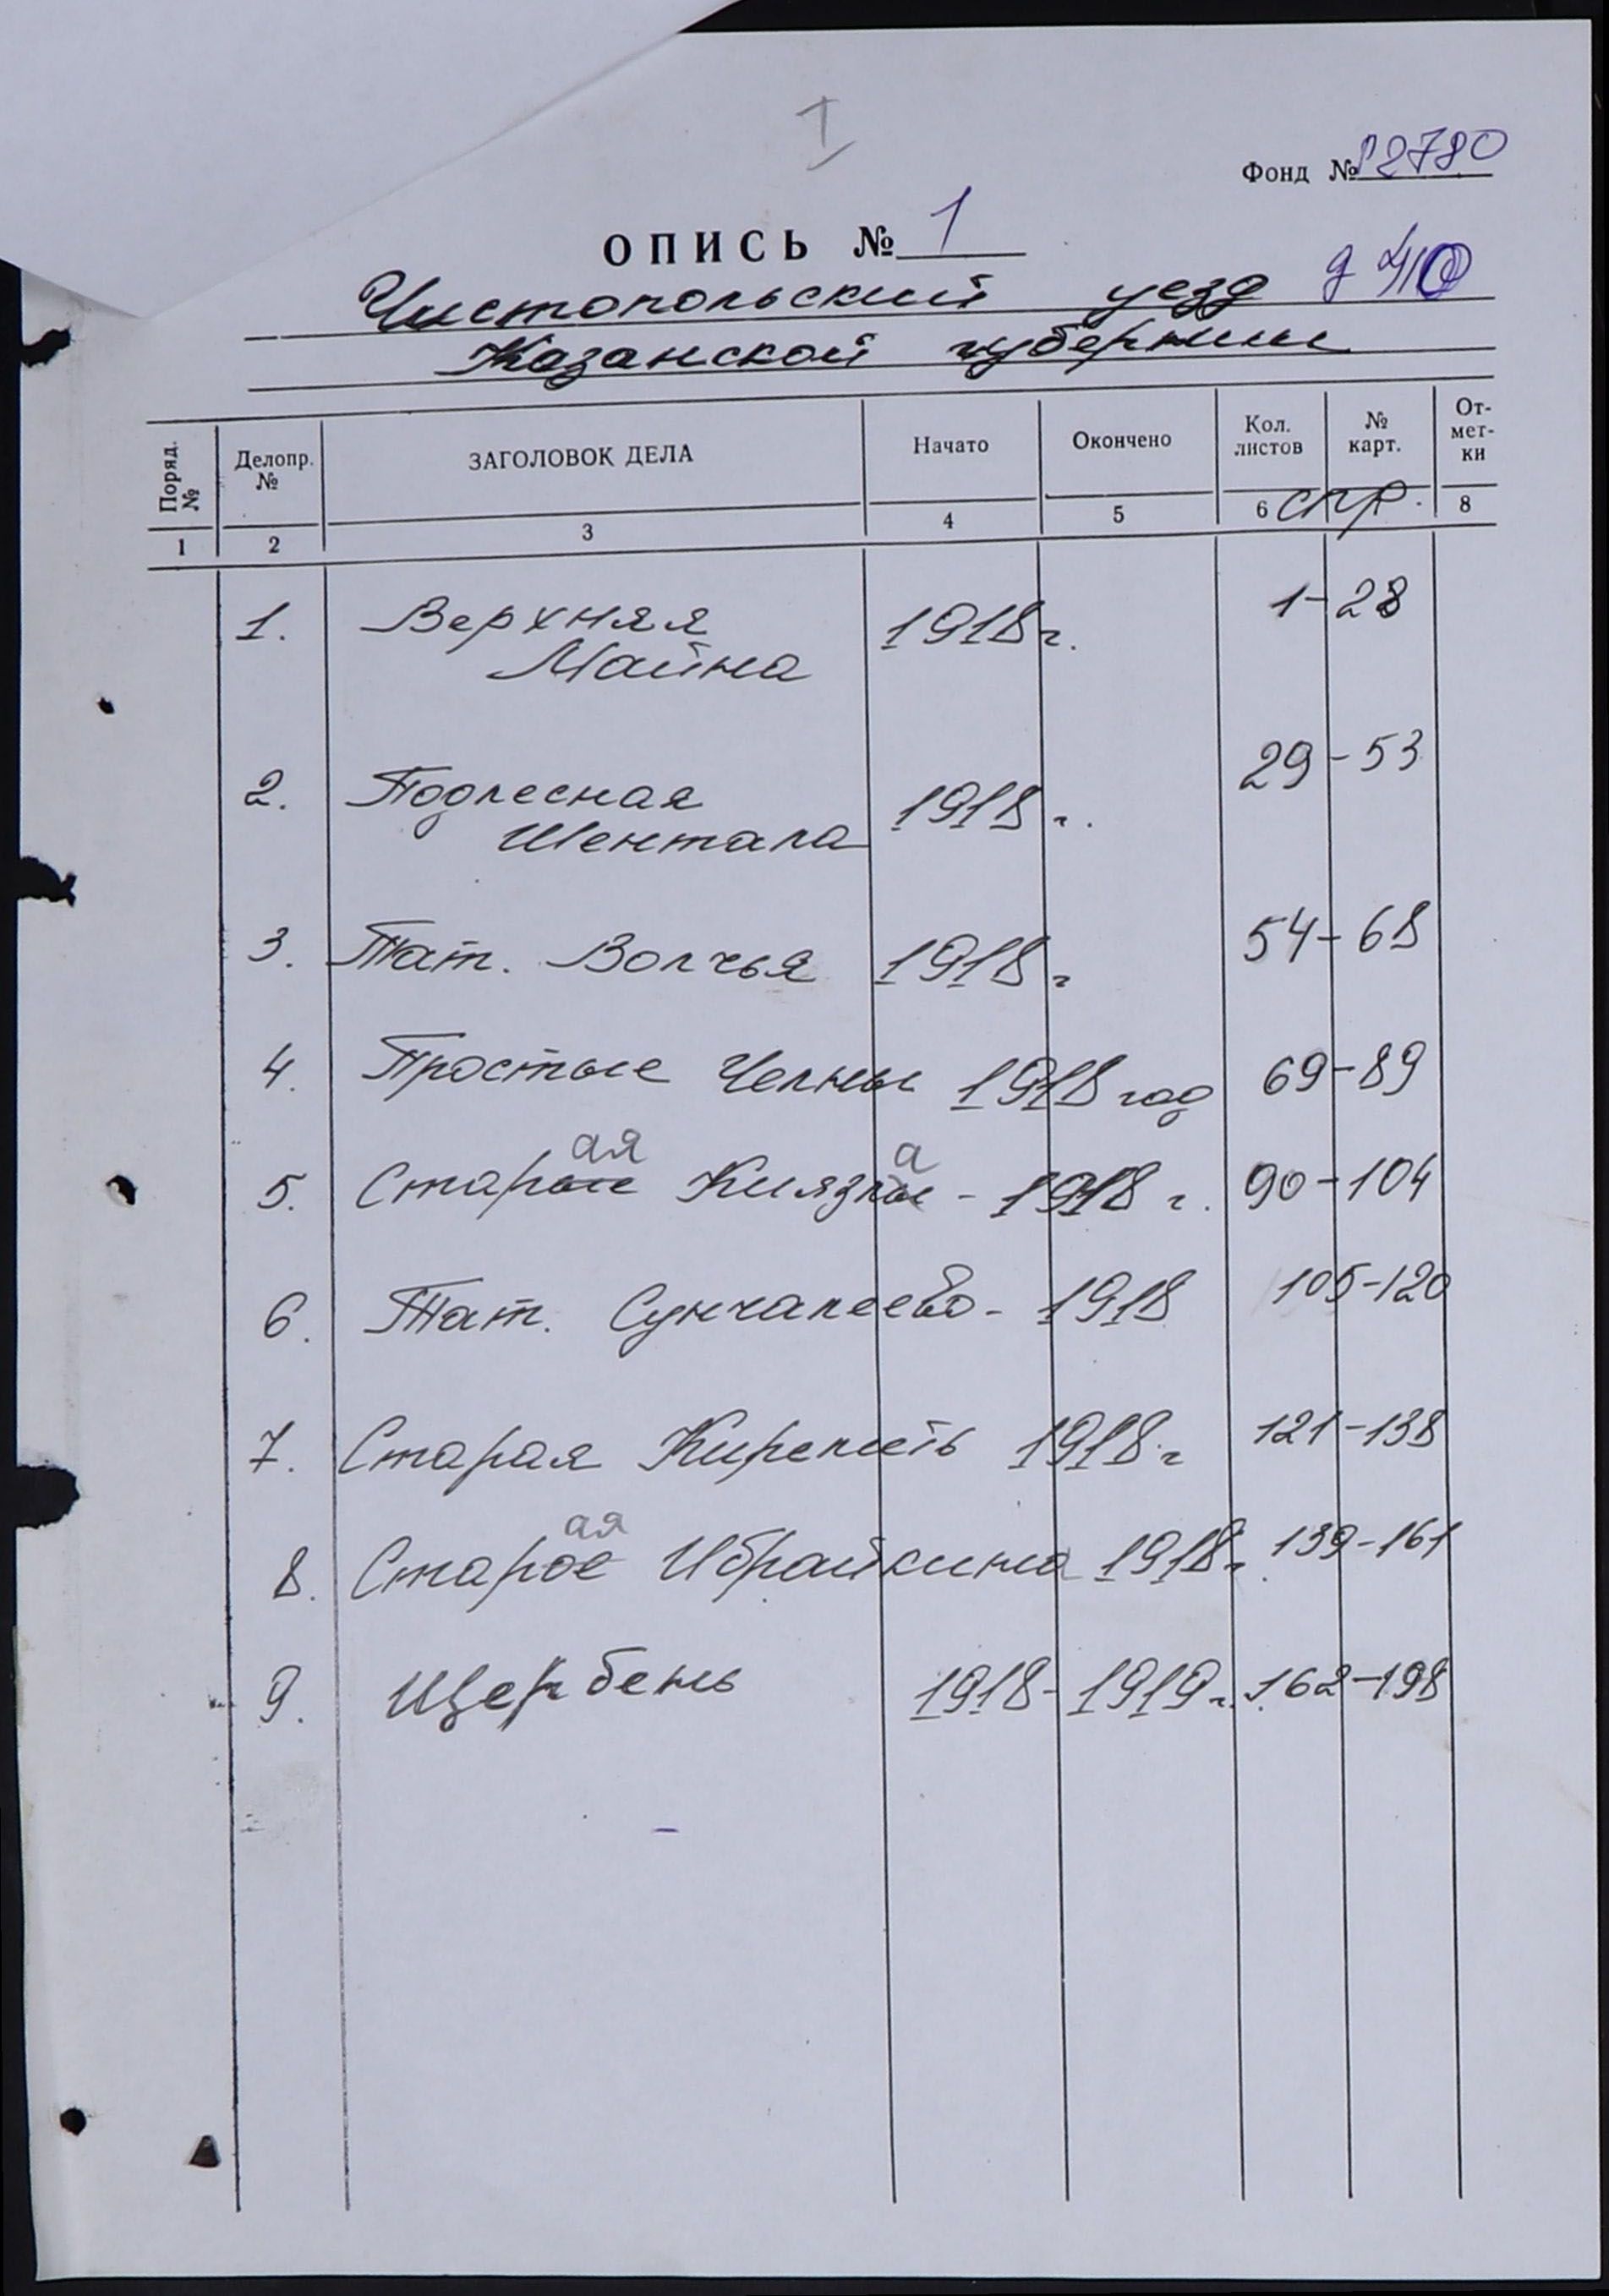 1
Фонд № Р2780
ОПИСЬ № 1
Чистопольский уезд
Казанской губернии
Поряд. №
Делопр. №
ЗАГОЛОВОК ДЕЛА
Начато
Окончено
Кол. листов
№ карт.
От-
мет-
ки
1 2 3 4 5 6 стр. 8
1. Верхняя 1918 г. 1-28
Майна
2. Подлесная 1918 г. 29-53
Шентала
3. Тат. Волчья 1918 г 54-68
4. Простые Челны 1918 год 69-89
ая а
5. Старые Киязлы - 1918 г. 90-104
6. Тат. Сунчалеево - 1918 105-120
7. Старая Киреметь 1918 г 121-138
ая
8. Старое Ибрайкина 1918 г. 139-161
9. Щербень 1918-1919 г. 162-198